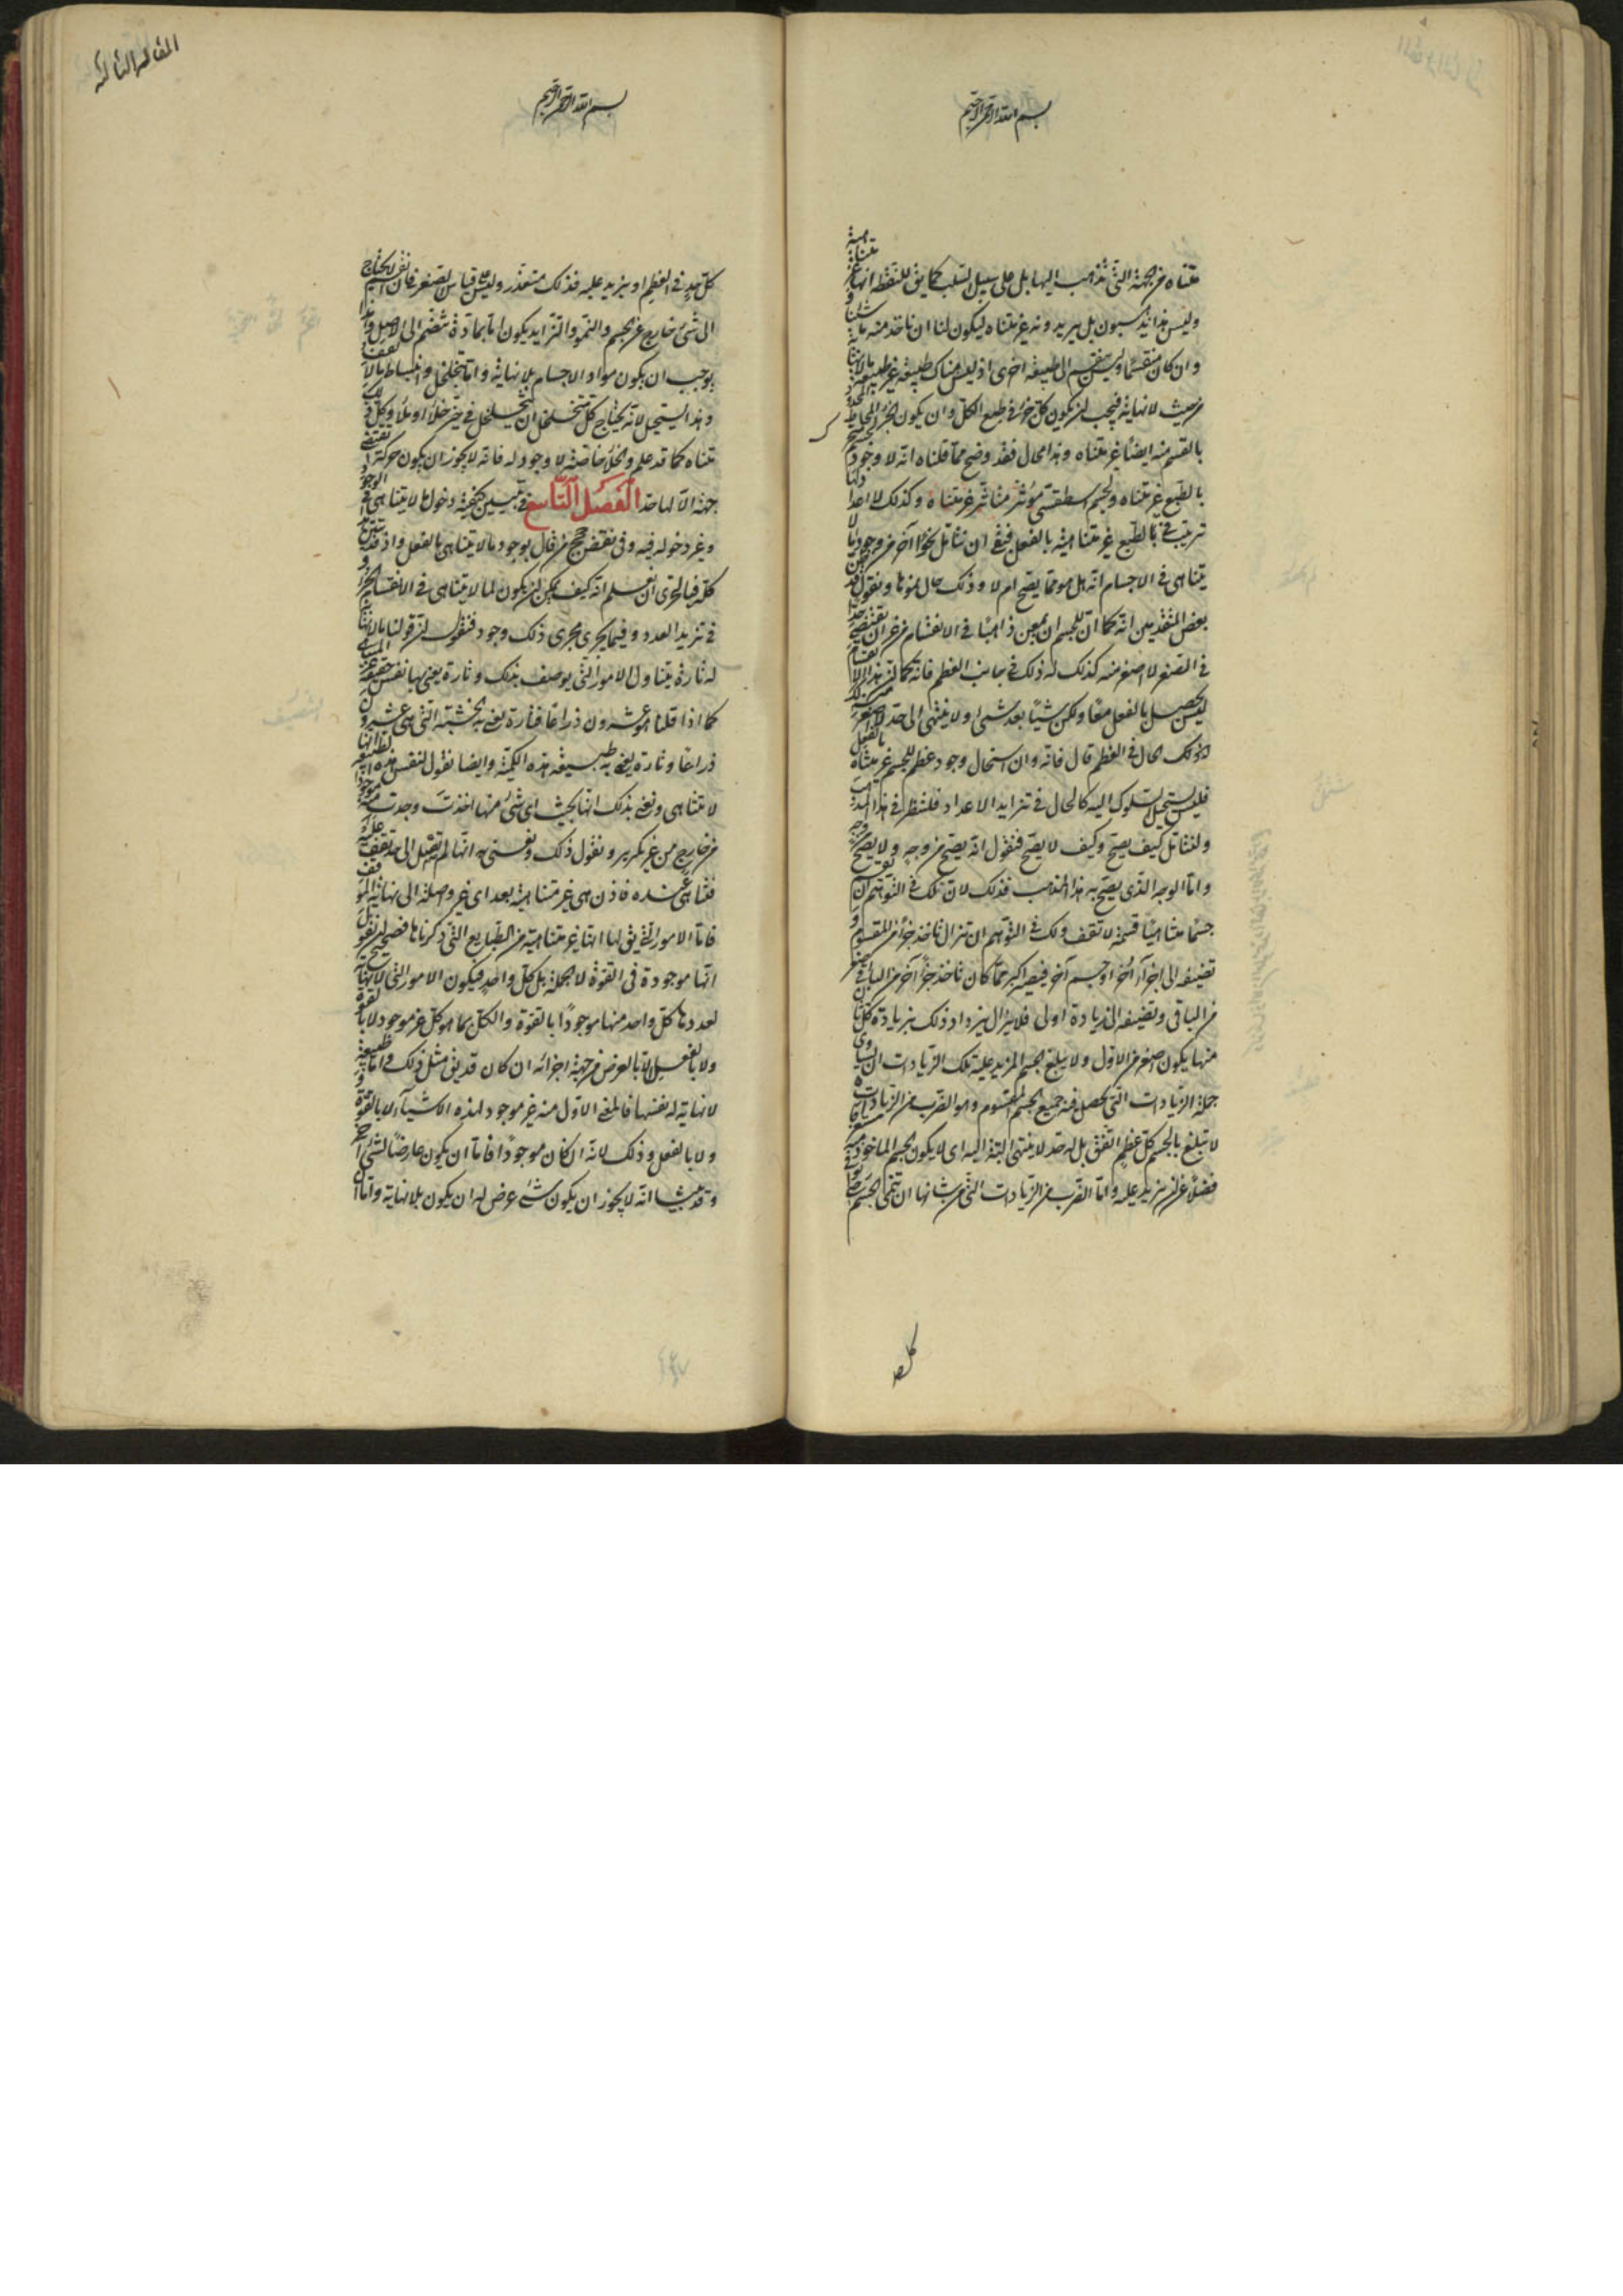 بسم الله الرحمن الرحيم
متناه من الجهة التى تذهب اليها بل على سبيل السلب كما يق للنقطة انها غير متناهية
وليس هذا يذكسبون بل يريدونه غير متناه ليكون لنا ان ناخذ منه ما شئنا
وان كان منقسما وليس ينقسم الى طبيعة اخرى اذ ليس هناك طبيعة غير طبيعة ما لا نهاية
من حيث لا نهاية فيجب ان يكون كل جزء فى طبع الكل وان يكون الجزء المحاط المحدود
بالقسم منه ايضا غير متناه وهذا محال فقد وضح مما قلناه انه لا وجود لجسم
بالطبع غير متناه ولجسم اسطقسى مؤثر متاثر غير متناه وكذلك لاعداد لها
ترتيب فى الطبع غير متناهية بالفعل فبقى ان نتامل نحوا آخر من وجود ما لا
يتناهى فى الاجسام انه هل هو مما يصح ام لا وذلك حال نموها ونقول قد ظن
بعض المتقدمين انه كما ان للجسم ان يمعن ذاهبا فى الانقسام من غير ان يقف عند حد
فى الصغر لا اصغر منه كذلك له ذلك فى جانب العظم فانه كما ان هذا الانقسام
ليس يحصل بالفعل معا ولكن شيئا بعد شئ ولا ينتهى الى حد لا اصغر منه
كذلك الحال فى العظم قال فانه وان استحال وجود عظم للجسم غير متناه بالفعل
فليس يستحيل السلوك اليه كالحال فى تزايد الاعداد فلننظر فى هذا المذهب
ولنتامل كيف يصح وكيف لا يصح فنقول انه يصح من وجه ولا يصح من وجه
واما الوجه الذى يصح به هذا المذهب فذلك لان لك فى التوهم ان
جسما متناهيا قسمة لا تقف ولك فى التوهم ان تزال تاخذ جزءا من المقسوم و
تضيفه الى اجزاء أخر او جسم آخر فيصير اكبر مما كان تاخذ جزءا آخر من الباقى اصغر
من الباقى وتضيفه الى زيادة اولى فلا يزال يزداد ذلك بزيادة كل ثان
منها يكون اصغر من الاول ولا يبلغ الجسم المزيد عليه تلك الزيادات ان يساوى
جملة الزيادات التى تحصل منه جميع الجسم المقسوم وهو الضرب من الزيادات
لا تبلغ بالجسم كل عظم اتفق بل له حد لا ينتهى البتة اليه اى لا يكون الجسم الماخوذ منه
فضلا عن ان يزيد عليه واما الضرب من الزيادات التى من شانها ان تنمى الجسم
كل حد
المقالة الثالثة
بسم الله الرحمن الرحيم
كل حد فى العظم او يزيد عليه فذلك متعذر وليس على قياس الصغر فان القسم لا يحتاج
الى شئ خارج عن الجسم والنمو والتزايد يكون اما بمادة تنضم الى الاصل وهذا
يوجب ان يكون مواد الاجسام بلا نهاية واما بتخلخل وانبساط بلا وقف
وهذا يستحيل لانه يحتاج كل متخلخل ان يتخلخل فى حيز خلاء او ملاء وكل ذلك
متناه كما قد علم والخلاء خاصة لا وجود له فانه لا يجوز ان يكون حركة تقتضى
جهة الا لها حد الفصل التاسع فى تبيين كيفية دخول ما لا يتناهى فى الوجود
وغير دخوله فيه وفى نقض حجج من قال بوجود ما لا يتناهى بالفعل واذ قد تبين هذا
كله فبالحرى ان نعلم انه كيف يمكن ان يكون لما لا يتناهى فى الانقسام الجزء و
فى تزيد العدد وفيما يجرى مجرى ذلك وجود فنقول ان قولنا ما لا نهاية
له تارة يتناول الامور التى يوصف بذلك وتارة يعنى بها نفس حقيقة غير المتناهى
كما اذا قلنا هو عشرون ذراعا فتارة يعنى به الخشبة التى هى عشرون
ذراعا وتارة يعنى به طبيعة هذه الكمية وايضا نقول لنفس هذه الطبيعة انها
لا تتناهى ونعنى بذلك انها بحيث اى شئ منها اخذت وجدت منه موجودا
من خارج من غير تكرير ونقول ذلك ونعنى به انها لم تصل الى حد تقف عليه
فتتناهى عنده فاذن هى غير متناهية بعد اى غير واصلة الى نهاية الموقف
فاما الامور التى يق لها انها غير متناهية من الطبايع التى ذكرناها فصحيح ان نقول
انها موجودة فى القوة لا الجملة بل كل واحد فيكون الامور التى لا نهاية
لعددها كل واحد منها موجودا بالقوة والكل بما هو كل غير موجود لا بالقوة
ولا بالفعل الا بالعرض من جهة اجزائه ان كان قد يق مثل ذلك واما طبيعة
لا نهاية له نفسها فالمعنى الاول منه غير موجود لهذه الاشياء لا بالقوة
ولا بالفعل وذلك لانه ان كان موجودا فاما ان يكون عارضا لشئ آخر
وقد بينا انه لا يجوز ان يكون شئ عرض له ان يكون بلا نهاية واما ان